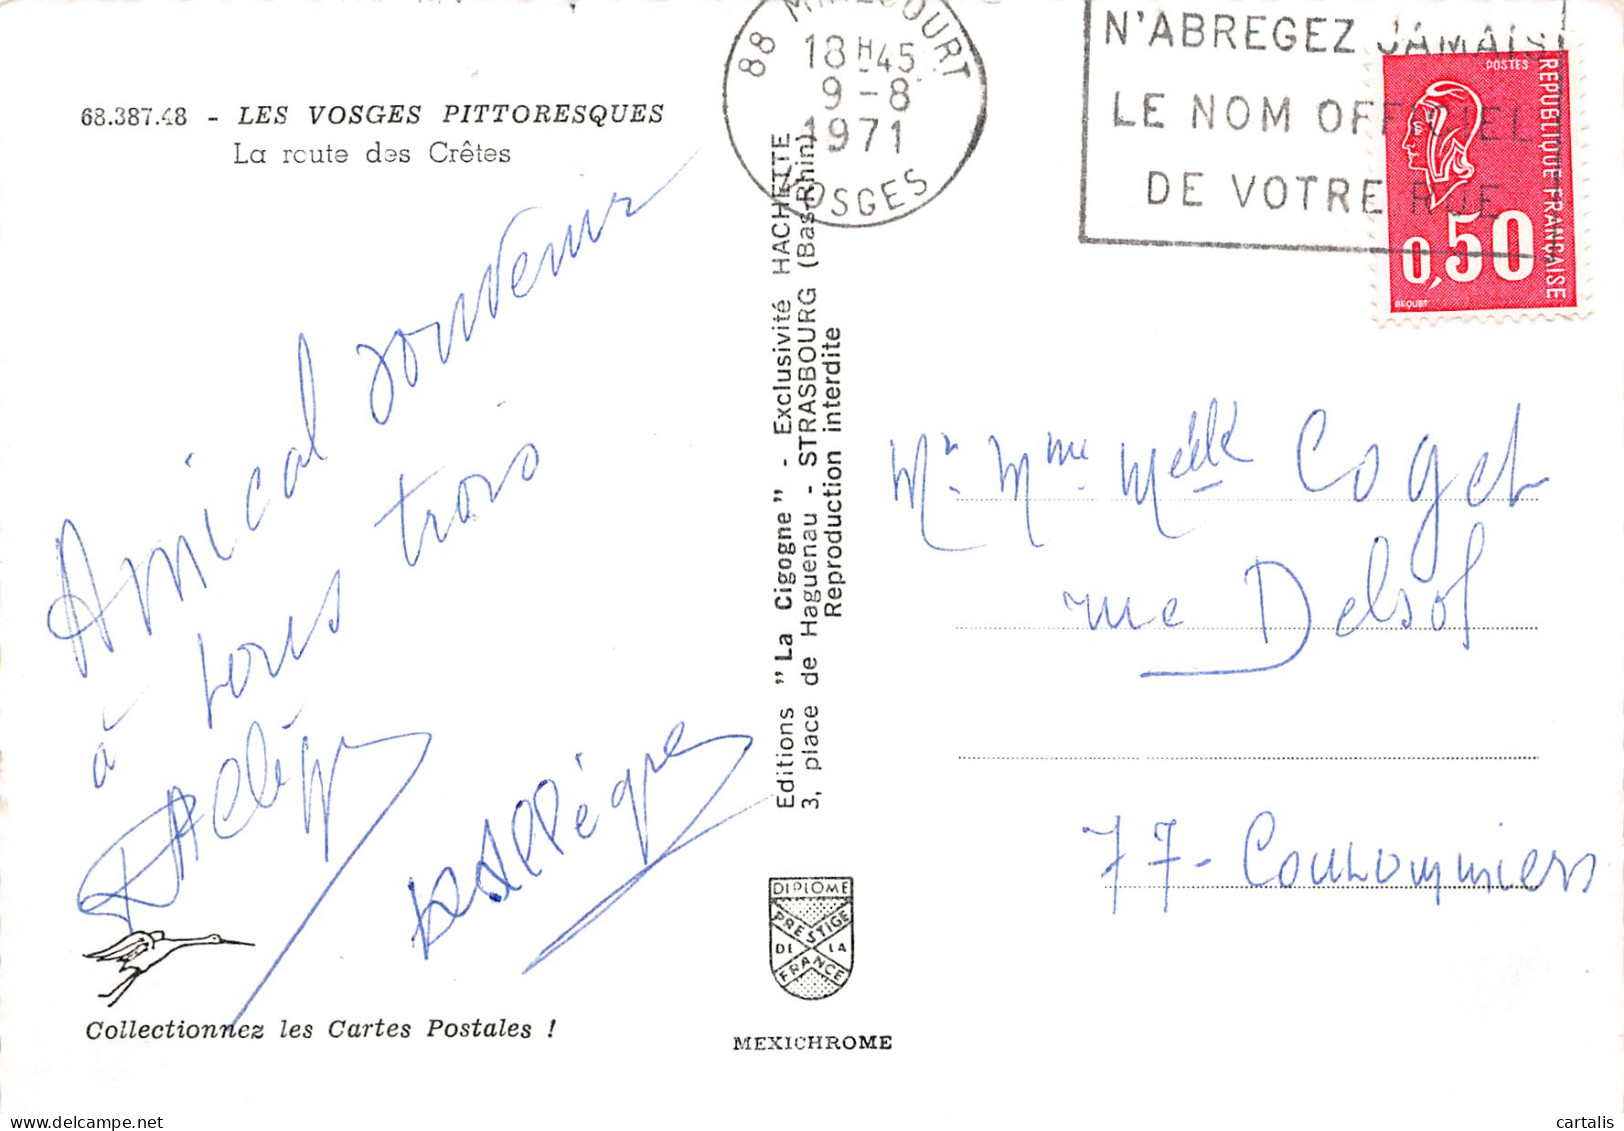 68.387.48 - LES VOSGES PITTORESQUES
La route des Crêtes
Amical souvenir
à tous trois
Collectionnez les Cartes Postales !
Editions "La Cigogne" - Exclusivité HACHETTE
3, place de Haguenau - STRASBOURG (Bas-Rhin)
Reproduction interdite
DIPLOME
PRESTIGE
DE LA
FRANCE
MEXICHROME
88 MIRECOURT
18H45
9-8
1971
VOSGES
N'ABREGEZ JAMAIS
LE NOM OFFICIEL
DE VOTRE RUE
POSTES
REPUBLIQUE FRANÇAISE
0,50
BEQUET
Mr. Mme Melle Coget
rue Delsol
77 - Coulommiers